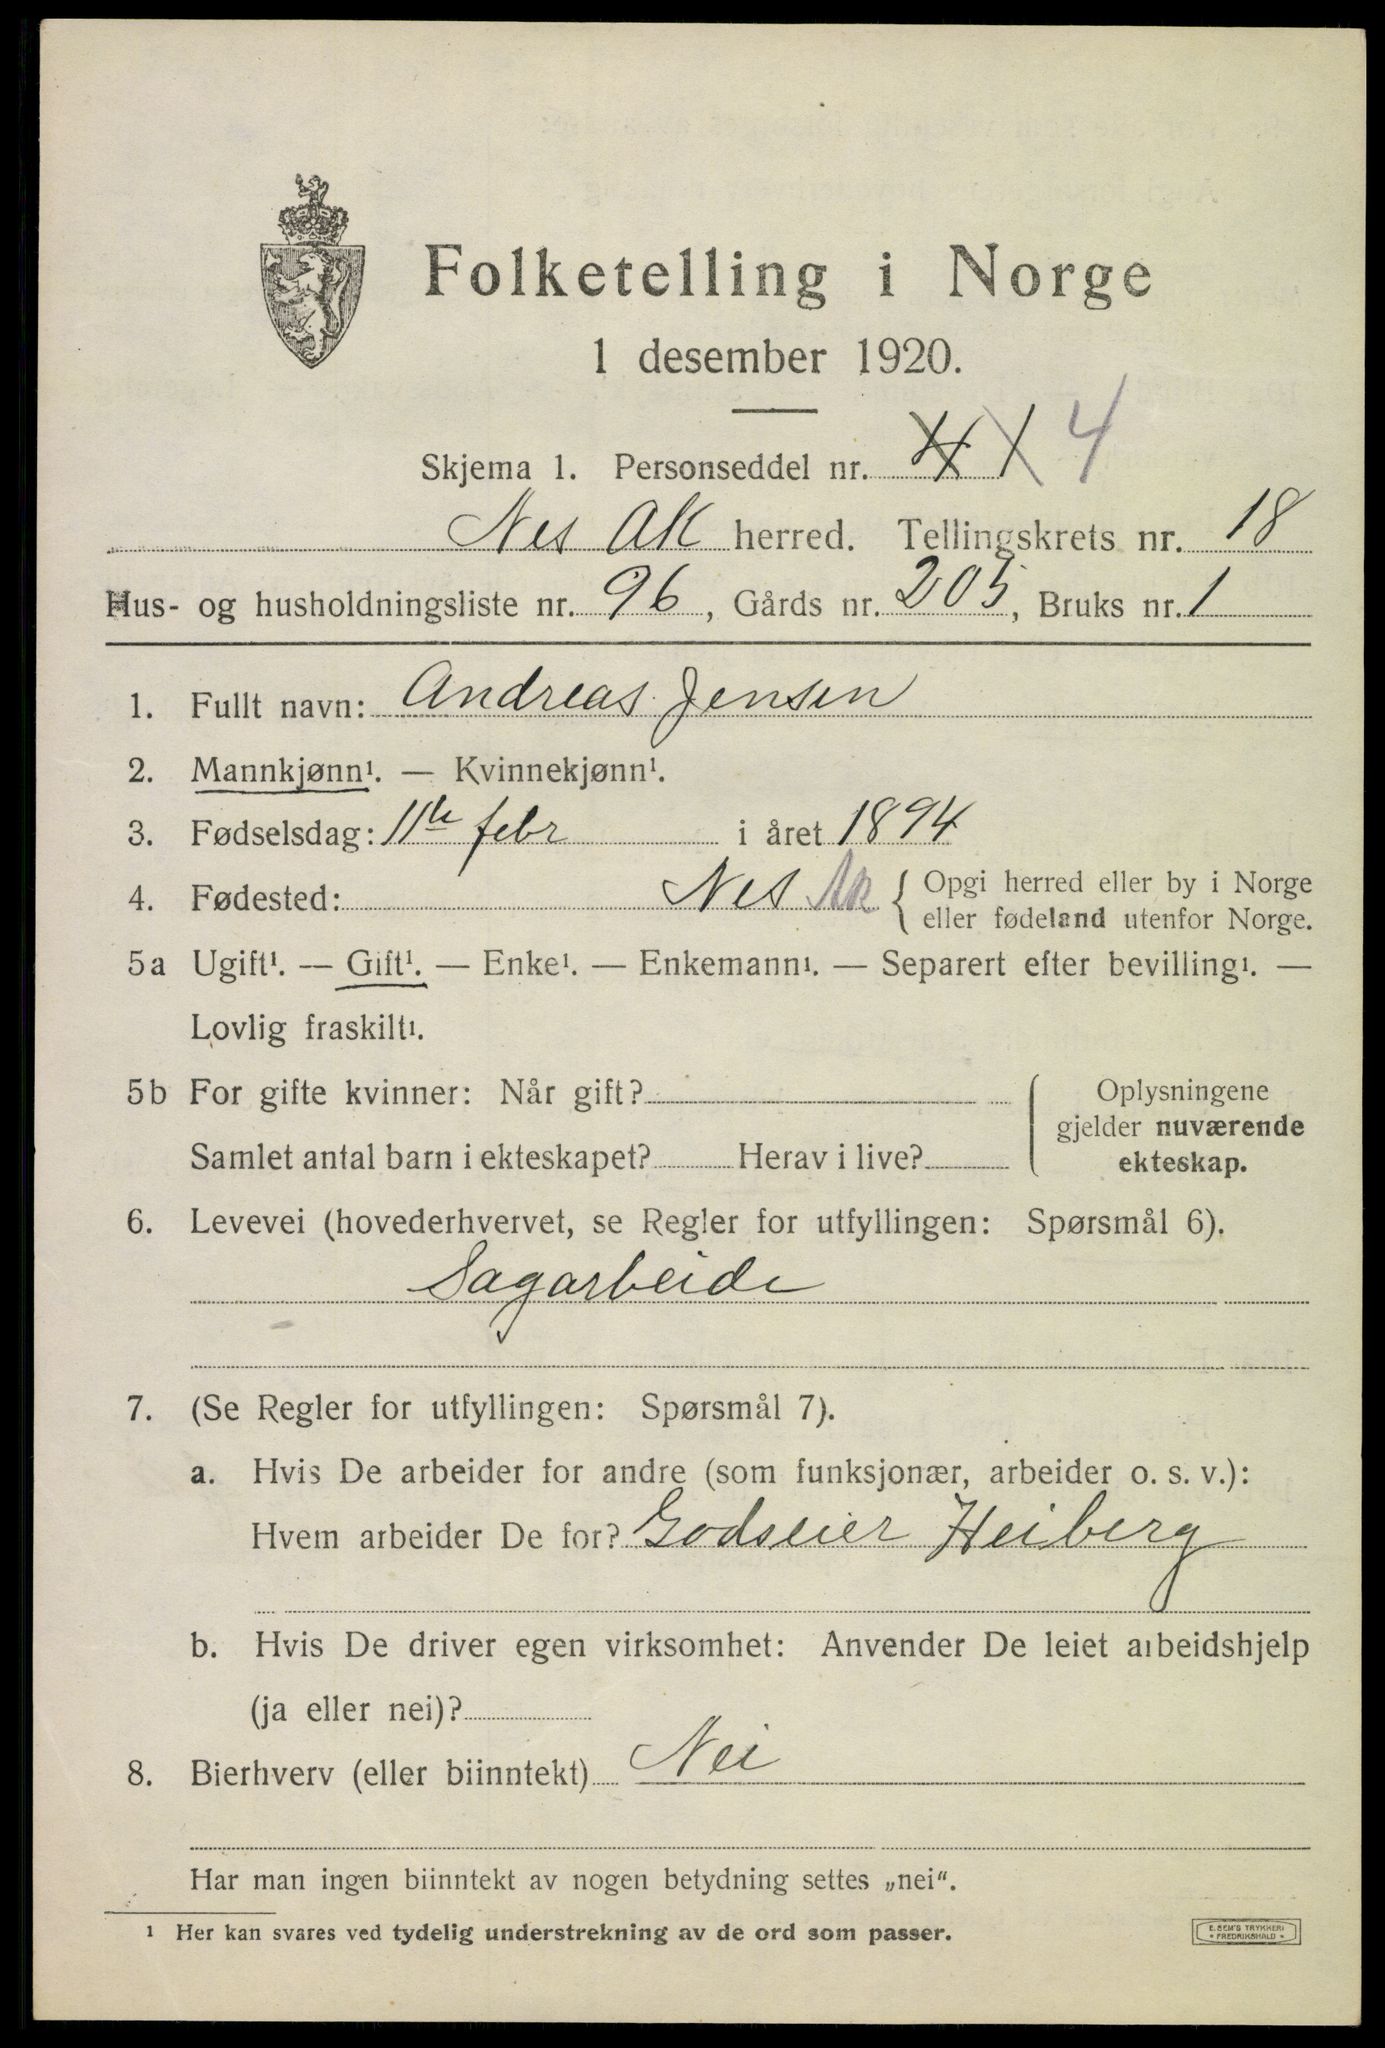 Folketelling i Norge
1 desember 1920.
Skjema 1. Personseddel nr. 4
Nes AK herred. Tellingskrets nr. 18
Hus- og husholdningsliste nr. 96, Gårds nr. 205, Bruks nr. 1
1. Fullt navn: Andreas Jensen
2. Mannkjønn¹. — Kvinnekjønn¹.
3. Fødselsdag: 11te febr i året 1894
4. Fødested: Nes Ak { Opgi herred eller by i Norge
eller fødeland utenfor Norge.
5a Ugift¹. — Gift¹. — Enke¹. — Enkemann¹. — Separert efter bevilling¹. —
Lovlig fraskilt¹.
5b For gifte kvinner: Når gift?
Samlet antal barn i ekteskapet? Herav i live?
Oplysningene
gjelder nuværende
ekteskap.
6. Levevei (hovederhvervet, se Regler for utfyllingen: Spørsmål 6).
Sagarbeide
7. (Se Regler for utfyllingen: Spørsmål 7).
a. Hvis De arbeider for andre (som funksjonær, arbeider o. s. v.):
Hvem arbeider De for? Godseier Heiberg
b. Hvis De driver egen virksomhet: Anvender De leiet arbeidshjelp
(ja eller nei)?
8. Bierhverv (eller biinntekt) Nei
Har man ingen biinntekt av nogen betydning settes „nei“.
1 Her kan svares ved tydelig understrekning av de ord som passer.
E. SEM'S TRYKKERI
• FREDRIKSHALD •